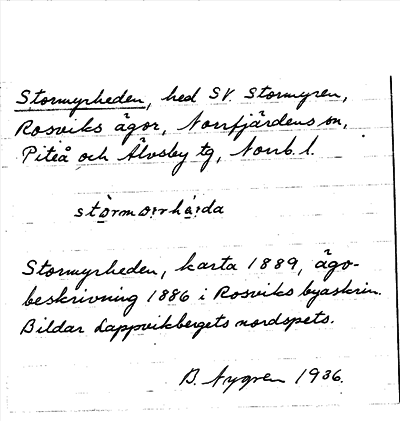 Stormyrheden, hed SV. Stormyren,
Rosviks ägor, Norrfjärdens sn,
Piteå och Älvsby tg, Norrb. l.
stòrmorrhá:da
Stormyrheden, karta 1889, ägo-
beskrivning 1886 i Rosviks byaskrin.
Bildar Lappvikbergets nordspets.
B. Nygren 1936.